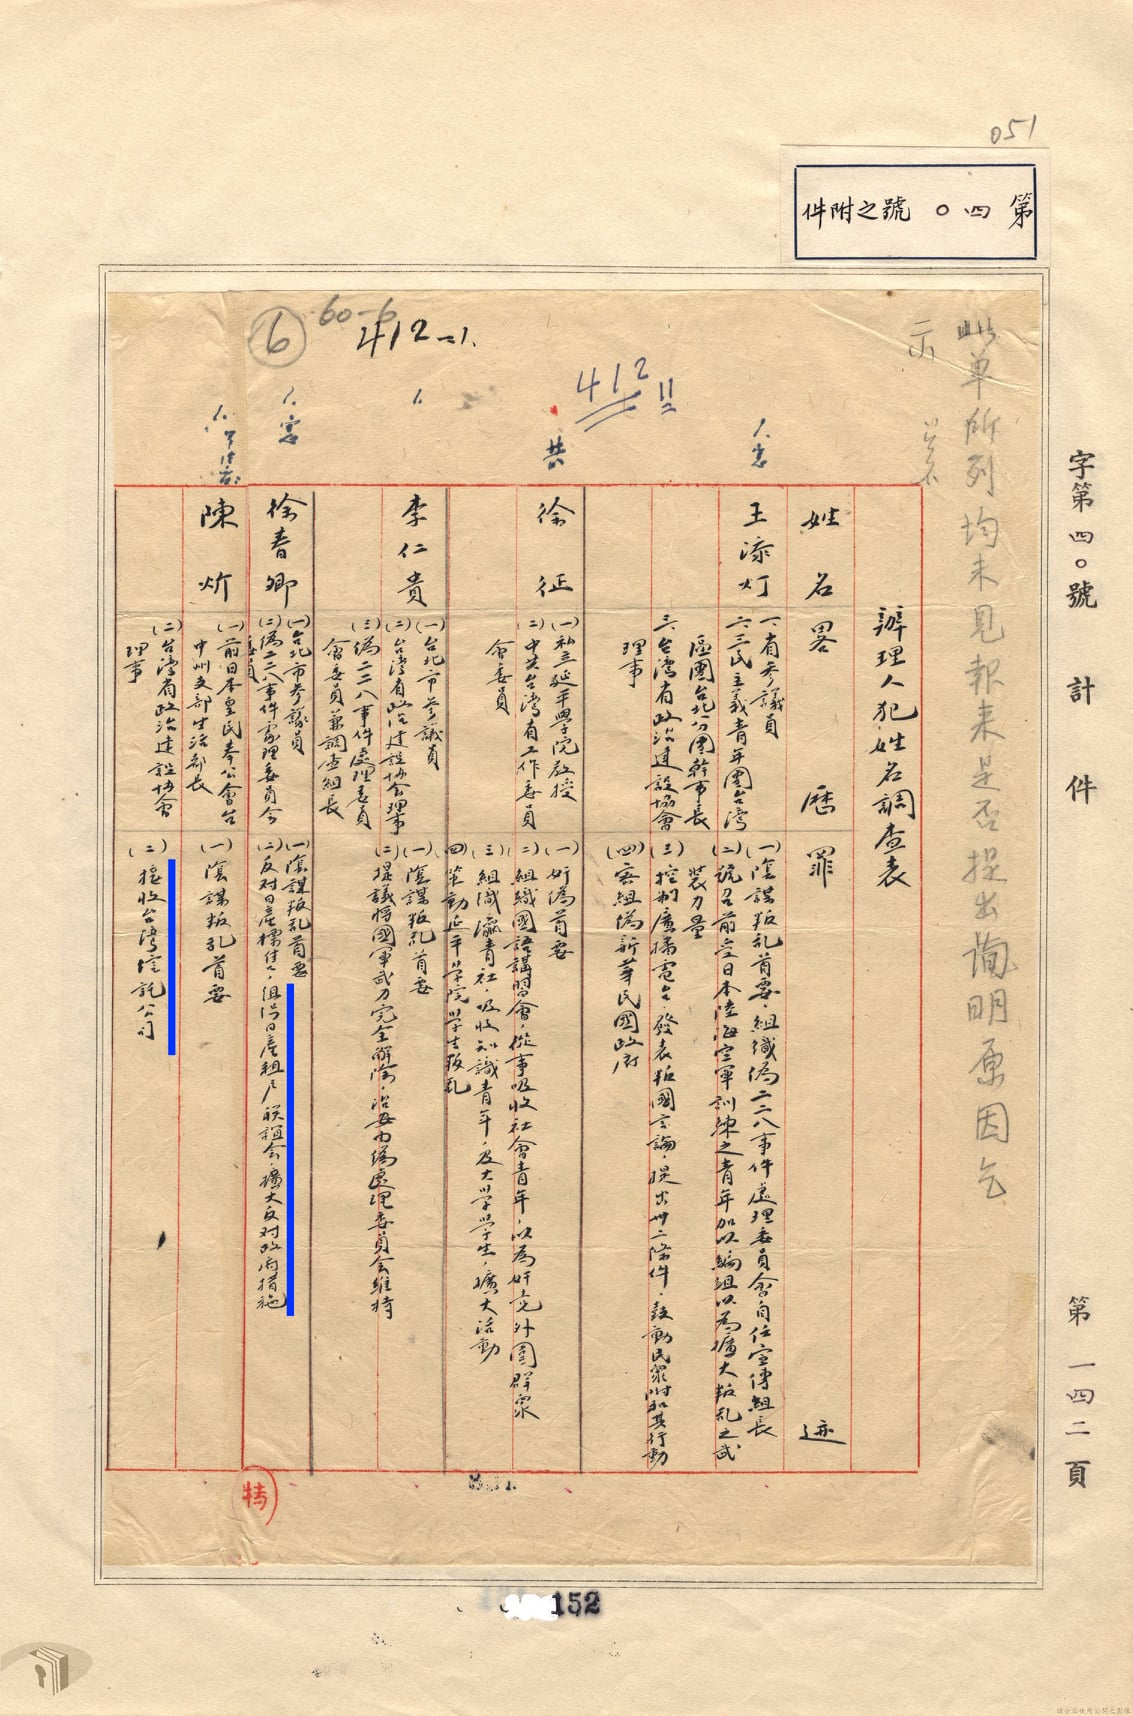 051
第四〇號之附件
字第四〇號計件
第一四二頁
此單所列均未見報来是否提出詢明原因乞
示
60-6
6
412-1.
412
辦理人犯姓名調查表
姓名
畧歷
罪迹
王添灯
一、省参議員
二、三民主義青年團台湾
區團台北分團幹事長
三、台湾省政治建設協會
理事
(一)陰謀叛乱首要，組織偽二二八事件處理委員會自任宣傳組長
(二)號召前空日本陸海空軍訓練之青年加以編組以為擴大叛乱之武
裝力量
(三)控制廣播電台，發表叛國言論，提出卅二條件，鼓動民衆附和其行動
(四)密組偽新華民國政府
共
徐征
(一)私立延平學院教授
(二)中共台湾省工作委員
會委員
(一)奸偽首要
(二)組織國語講習會，從事吸收社會青年，以為奸党外圍群衆
(三)組織瀛青社，吸收知識青年，及大学学生，擴大活動
(四)策動延平学院学生叛乱
李仁貴
(一)台北市参議員
(二)台湾省政治建設協會理事
(三)偽二二八事件處理委員
會委員兼調查組長
(一)陰謀叛乱首要
(二)提議將國軍武力完全解除，治安由偽處理委員会維持
徐春卿
(一)台北市参議員
(二)偽二二八事件處理委員会
委員
(一)陰謀叛乱首要
(二)反对日產標售，組満日產租户联誼会，擴大反对政府措施
陳炘
(一)前日本皇民奉公會台
中州支部生活部長
(二)台湾省政治建設協會
理事
(一)陰謀叛乱首要
(二)接收台湾信託公司
特
152